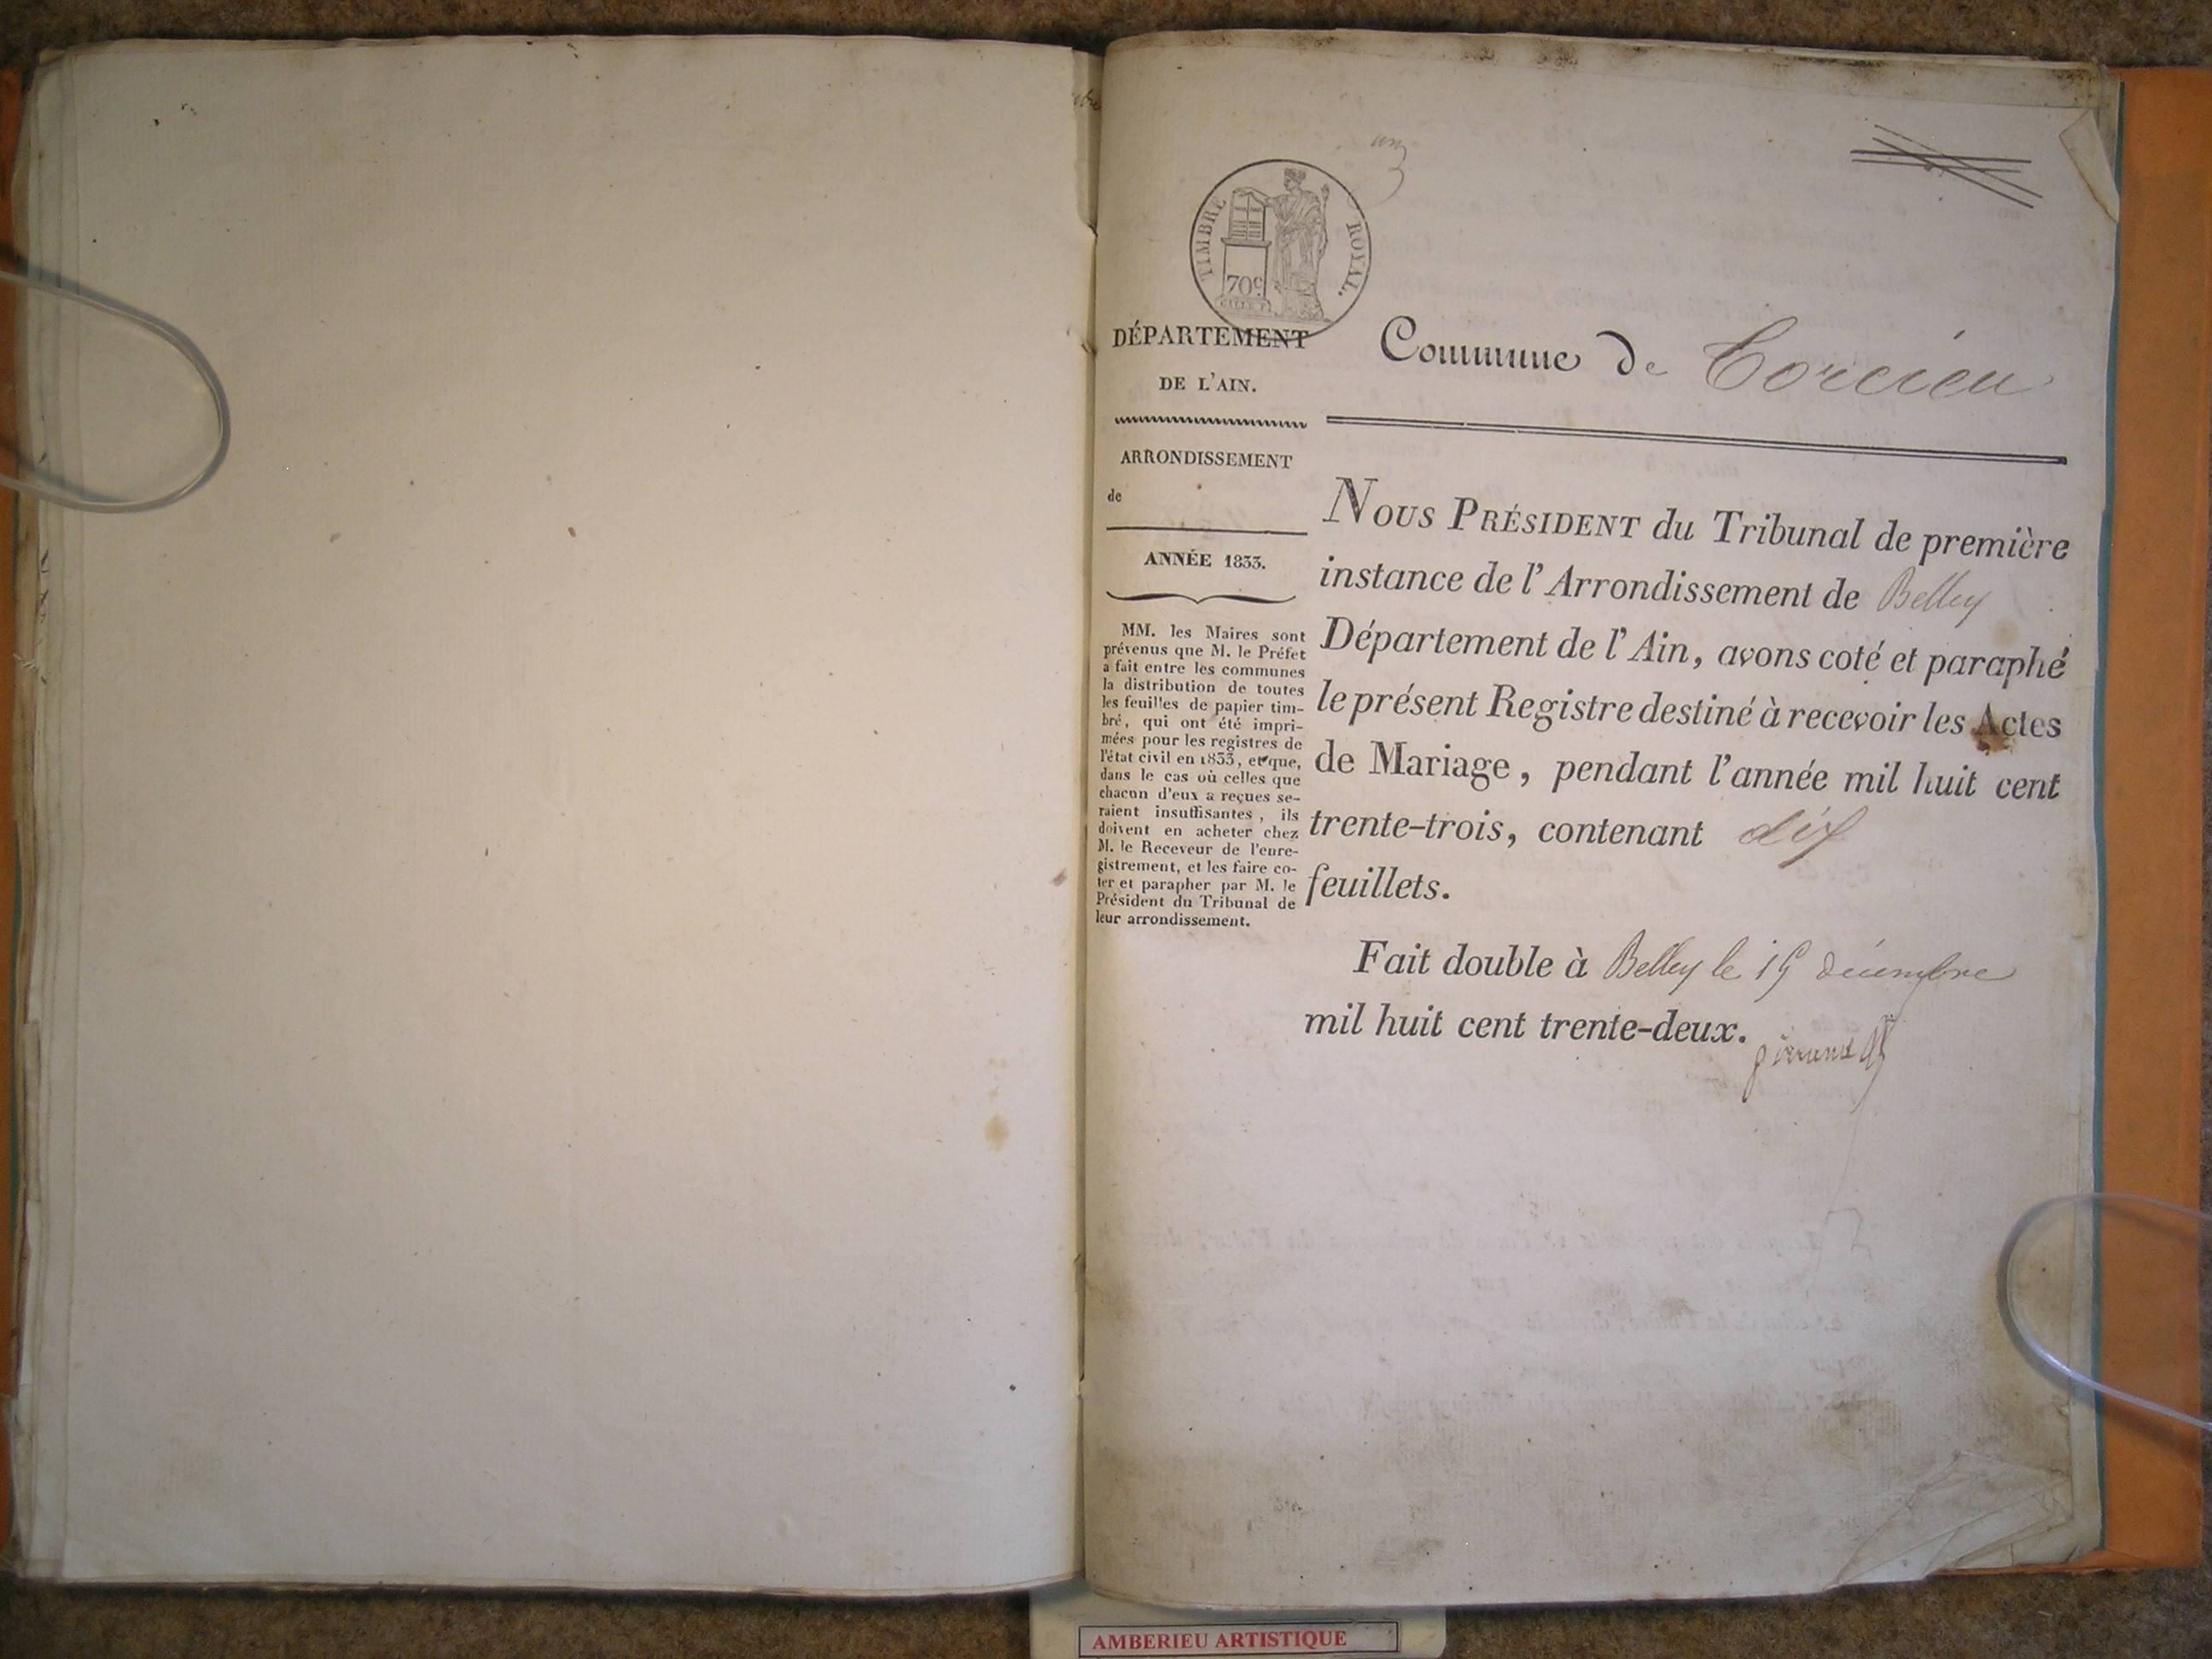 un
TIMBRE ROYAL.
70c
DÉPARTEMENT
DE L'AIN.
Commune de Torcieu
ARRONDISSEMENT
de
ANNÉE 1833.
MM. les Maires sont
prévenus que M. le Préfet
a fait entre les communes
la distribution de toutes
les feuilles de papier tim-
bré, qui ont été impri-
mées pour les registres de
l'état civil en 1833, et que,
dans le cas où celles que
chacun d'eux a reçues se-
raient insuffisantes, ils
doivent en acheter chez
M. le Receveur de l'enre-
gistrement, et les faire co-
ter et parapher par M. le
Président du Tribunal de
leur arrondissement.
NOUS PRÉSIDENT du Tribunal de première
instance de l'Arrondissement de Belley
Département de l'Ain, avons coté et paraphé
le présent Registre destiné à recevoir les Actes
de Mariage, pendant l'année mil huit cent
trente-trois, contenant dix
feuillets.
Fait double à Belley le 15 décembre
mil huit cent trente-deux.
AMBERIEU ARTISTIQUE